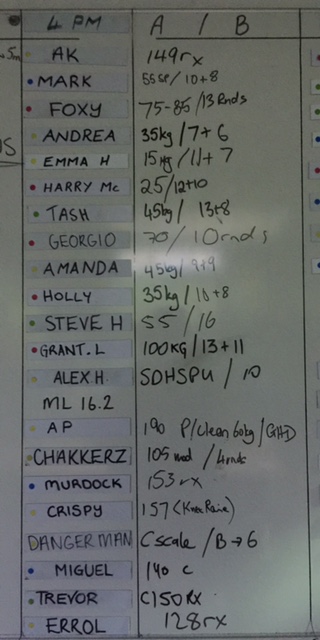 4 PM A / B
AK 149rx
MARK 55sp/10+8
FOXY 75-85/13Rnds
ANDREA 35kg/7+6
EMMA H 15kg/11+7
HARRY Mc 25/12+10
TASH 45kg/ 13+8
GEORGIO 70/10rnds
AMANDA 45kg/9+9
HOLLY 35kg/10+8
STEVE H 55/16
GRANT.L 100KG/13+11
ALEX H SDHSPU / 10
ML 16.2
AP 190 P/Clean 60kg/
CHAKKERZ 105 mod /4rnds
MURDOCK 153rx
CRISPY 157 (Knee Raise)
DANGERMAN C scale / B→6
MIGUEL 140 C
TREVOR C150RX
ERROL 128rx